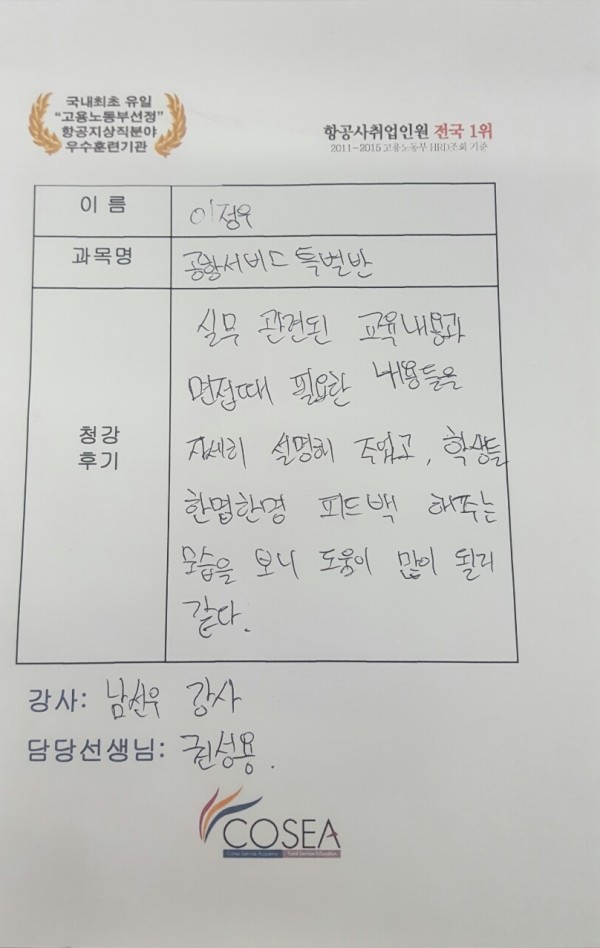 국내최초 유일
"고용노동부선정"
항공지상직분야
우수훈련기관
항공사취업인원 전국 1위
2011~2015 고용노동부 HRD조회 기준
이 름
이정우
과목명
공항서비스 특별반
청강
후기
실무 관련된 교육내용과
면접때 필요한 내용들을
자세히 설명해 주었고, 학생들
한명한명 피드백 해주는
모습을 보니 도움이 많이 될거
같다.
강사: 남선우 강사
담당선생님: 권성용.
COSEA